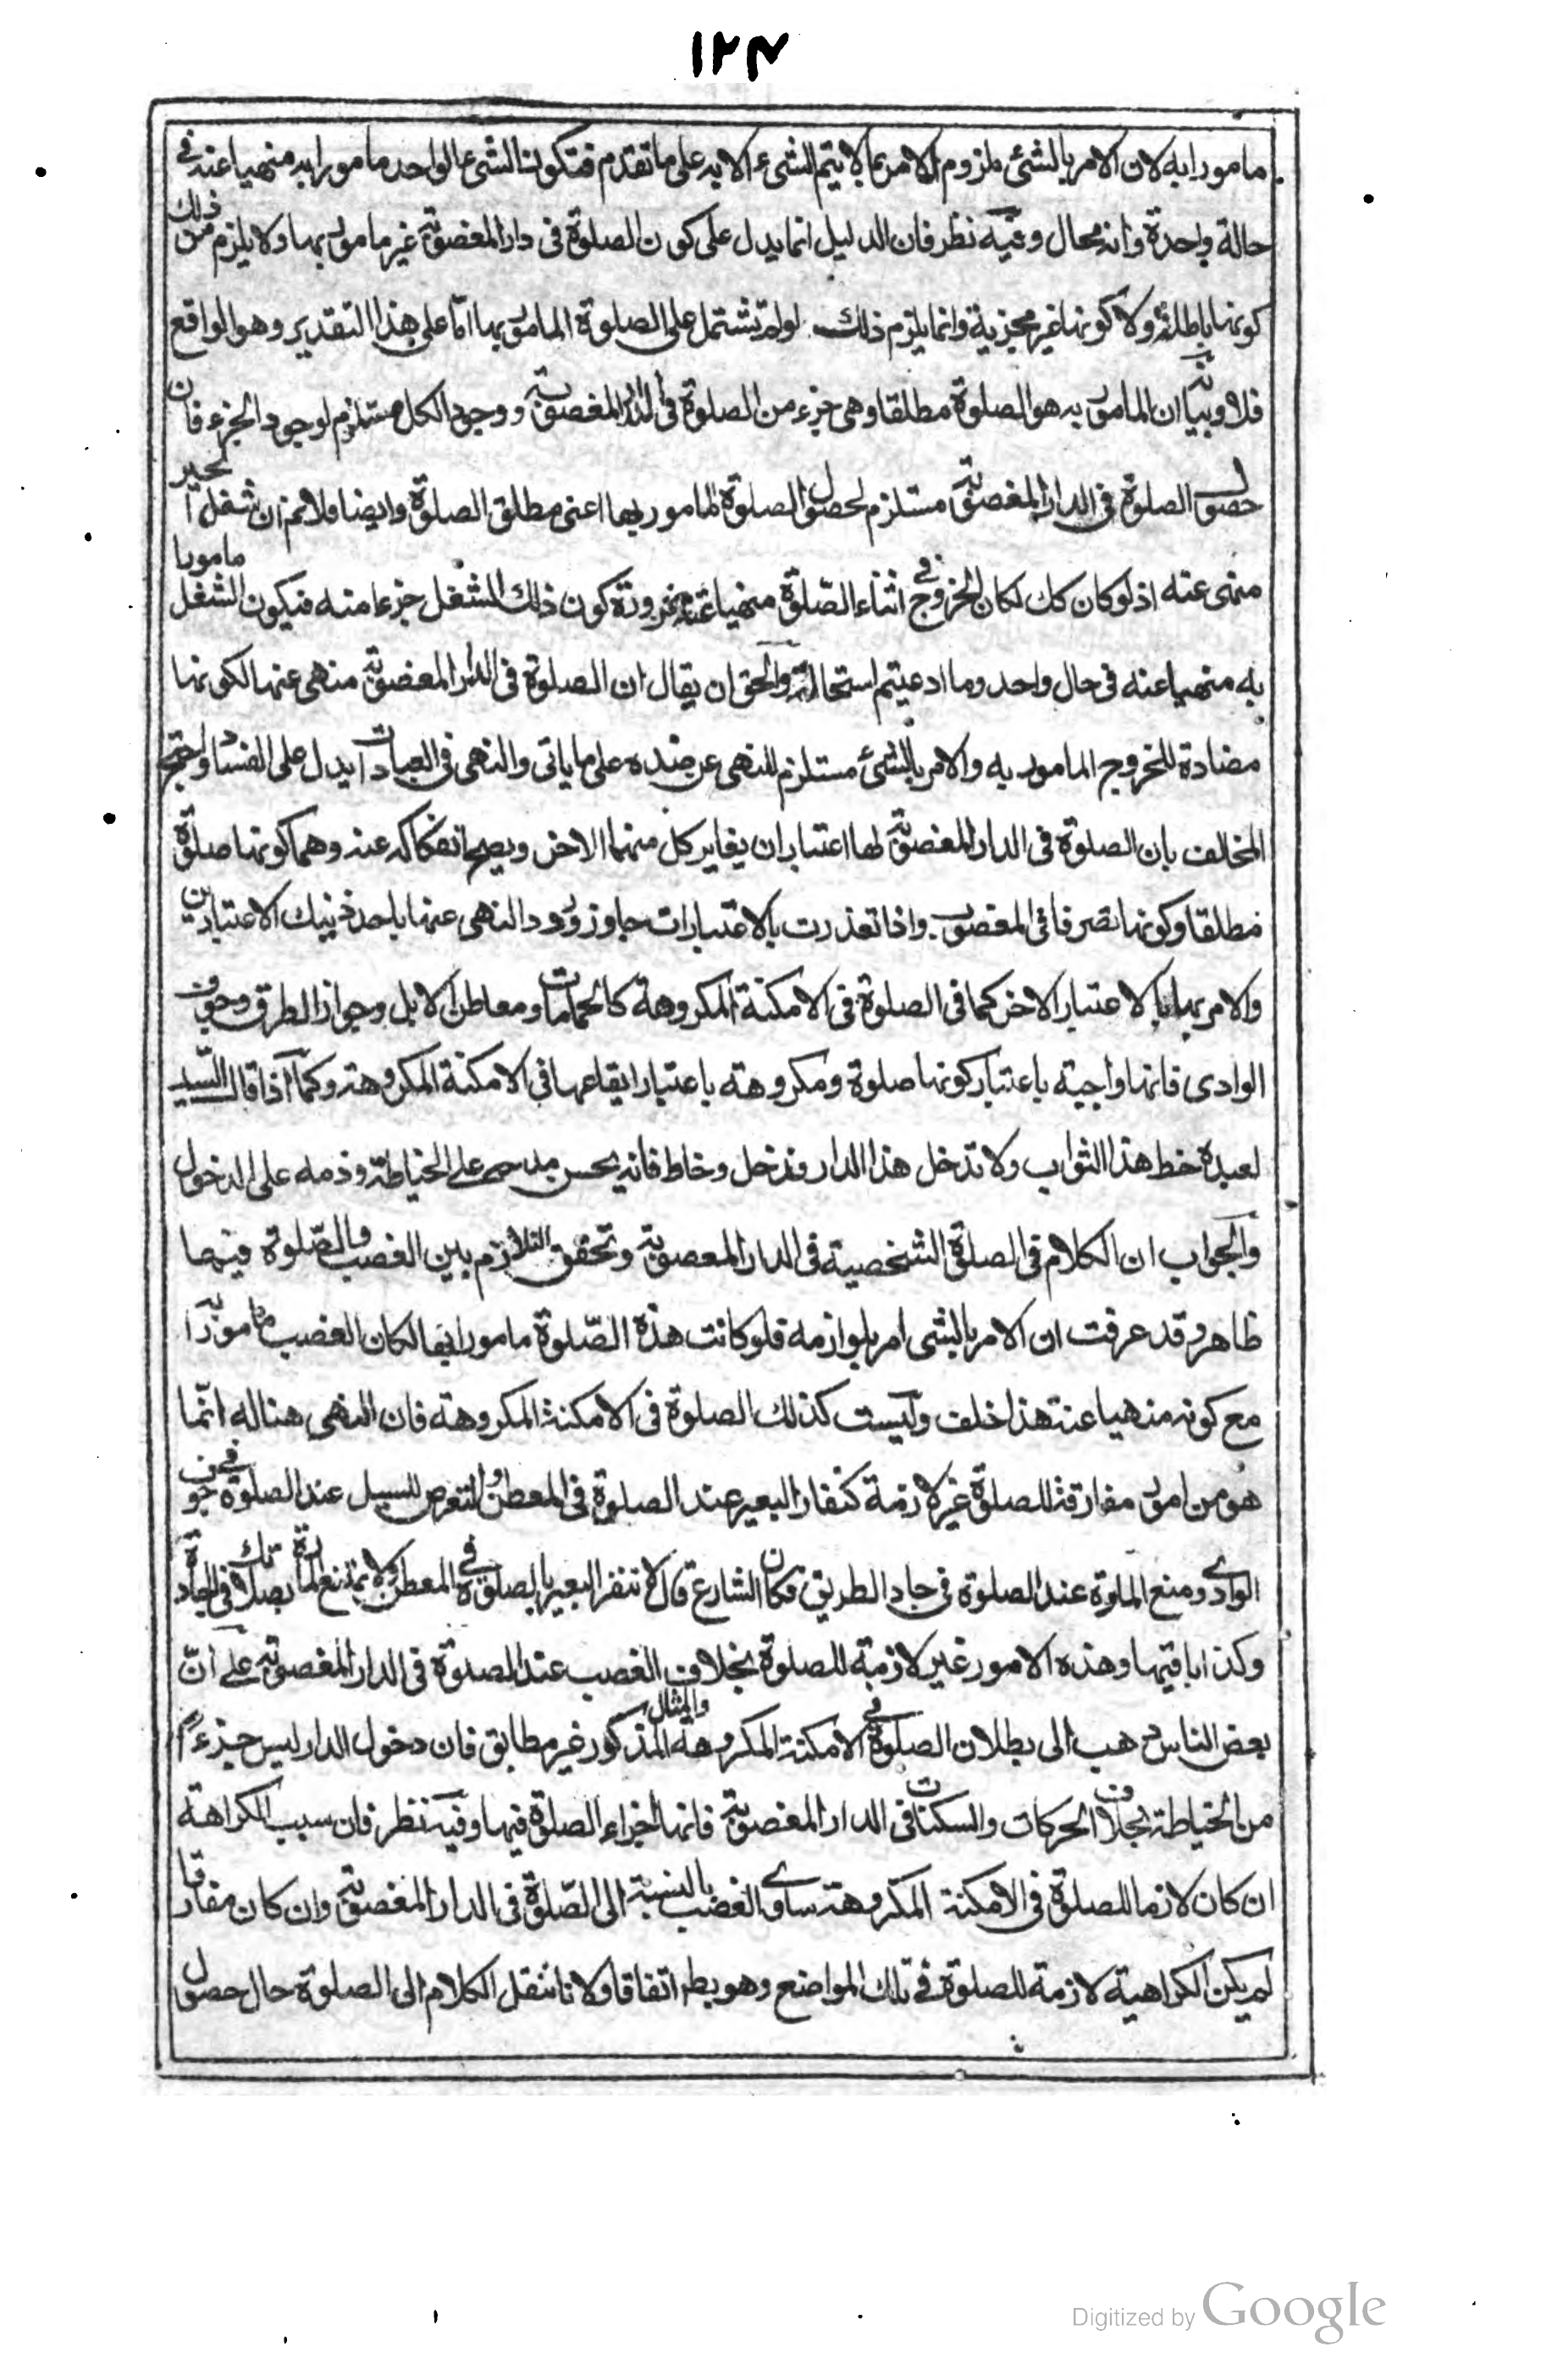 ١٢٤
مامورا به لان الامر بالشئ ملزوم الامر بما لا يتم الشيء الا به على ما تقدم فتكون الشئ الواحد مامورا به منهيا عنه في
حالة واحدة وانه محال وفيه نظر فان الدليل انما يدل على كون الصلوة فى دار المغصوبة غير مامور بها ولا يلزم من ذلك
كونها باطلة ولا كونها غير مجزية وانما يلزم ذلك لو لم تشتمل على الصلوة المامور بها اما على هذا التقدير وهو الواقع
فلا وبيانه ان المامور به هو الصلوة مطلقا وهى جزء من الصلوة فى الدار المغصوبة ووجود الكل مستلزم لوجود الجزء فان
حصول الصلوة فى الدار المغصوبة مستلزم لحصول الصلوة المامور بها اعنى مطلق الصلوة وايضا فلا نم ان شغل الحيز
منهى عنه اذ لو كان كك لكان الخروج فى اثناء الصلوة منهيا عنه ضرورة كون ذلك الشغل جزءا منه فيكون الشغل مامورا
به منهيا عنه فى حال واحد وما ادعيتم استحالته والحق ان يقال ان الصلوة فى الدار المغصوبة منهى عنها لكونها
مضادة للخروج المامور به والامر بالشئ مستلزم للنهى عن ضده على ما ياتى والنهى فى العبادات يدل على الفساد واحتج
المخالف بان الصلوة فى الدار المغصوبة لها اعتباران يغاير كل منهما الاخر ويصح انفكاكه عنه وهما كونها صلوة
مطلقا وكونها تصرفا فى المغصوب واذا تعذرت بالاعتبارات جاوز ورود النهى عنها باحد ذينك الاعتبارين
والامر بها بالاعتبار الاخر كما فى الصلوة فى الامكنة المكروهة كالحمامات ومعاطن الابل وجواز الطرق وجوف
الوادى فانها واجبة باعتبار كونها صلوة ومكروهة باعتبار ايقاعها فى الامكنة المكروهة وكما اذا قال السيد
لعبده خط هذا الثواب ولا تدخل هذا الدار فدخل وخاط فانه يحسن مدحه على الخياطة وذمه على الدخول
والجواب ان الكلام فى الصلوة الشخصية فى الدار المغصوبة وتحقق التلازم بين الغصب والصلوة فيها
ظاهر وقد عرفت ان الامر بالشى امر بلوازمه فلو كانت هذه الصلوة مامورا بها لكان الغصب مامورا به
مع كونه منهيا عنه هذا خلف وليست كذلك الصلوة فى الامكنة المكروهة فان النهى هناله انما
هو من امور مفارقة للصلوة غير لازمة كنفار البعير عند الصلوة فى المعطن والتعرض للسيل عند الصلوة فى جوف
الوادى ومنع المارة عند الصلوة فى جاد الطريق فكان الشارع قال لا تنفر البعير بالصلوة فى المعطن ولا تمنع المارة بصلاتك فى الجادة
وكذا باقيها وهذه الامور غير لازمة للصلوة بخلاف الغصب عند الصلوة فى الدار المغصوبة على ان
بعض الناس ذهب الى بطلان الصلوة فى الامكنة المكروهة والمثال المذكور غير مطابق فان دخول الدار ليس جزءا
من الخياطة بخلاف الحركات والسكنات فى الدار المغصوبة فانها اجزاء الصلوة فيها وفيه نظر فان سبب الكراهة
ان كان لازما للصلوة فى الامكنة المكروهة ساوى الغصب بالنسبة الى الصلوة فى الدار المغصوبة وان كان مفارقا
لم يكن الكراهية لازمة للصلوة فى تلك المواضع وهو بط اتفاقا ولانا ننقل الكلام الى الصلوة حال حصول
Digitized by Google